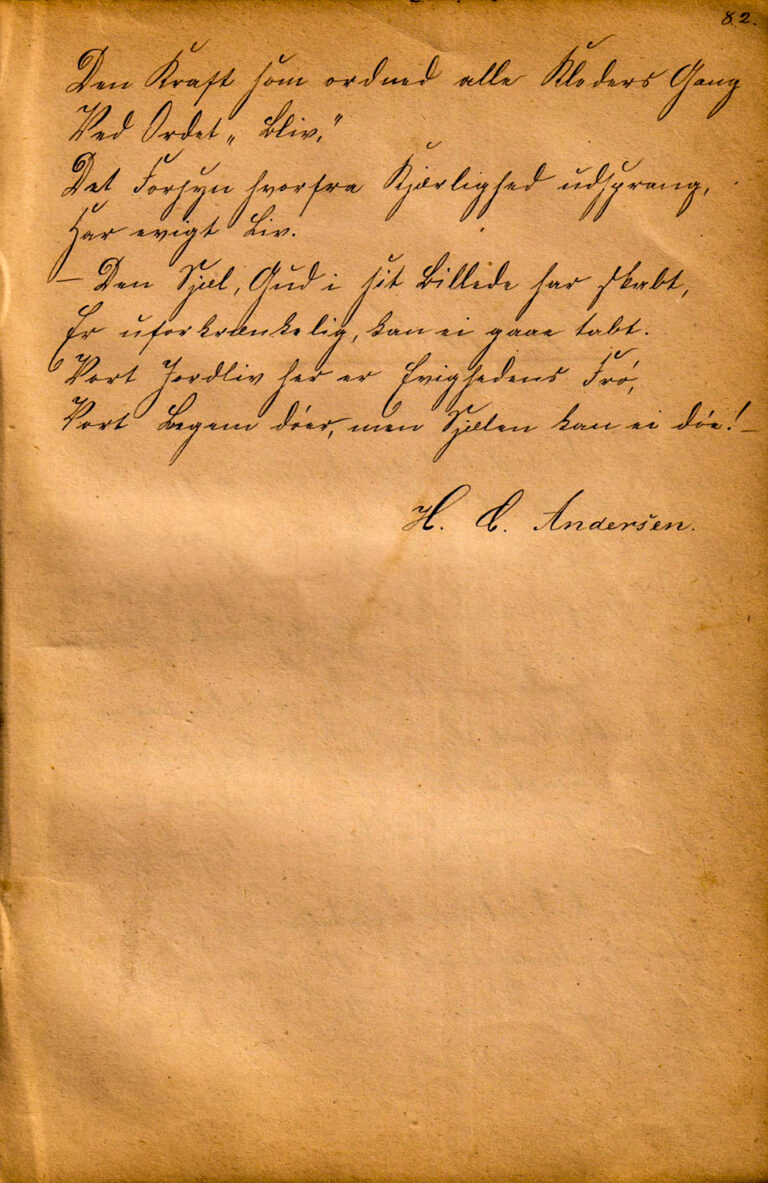 82.
Den Kraft som ordned alle Kloders Gang
Ved Ordet „Bliv,"
Det Forsyn hvorfra Kjærlighed udsprang,
Har evigt Liv.
– Den Sjæl, Gud i sit Billede har skabt,
Er uforkrænkelig, kan ei gaae tabt.
Vort Jordliv her er Evighedens Frø,
Vort Legem döer, men Sjælen kan ei döe! –
H. C. Andersen.